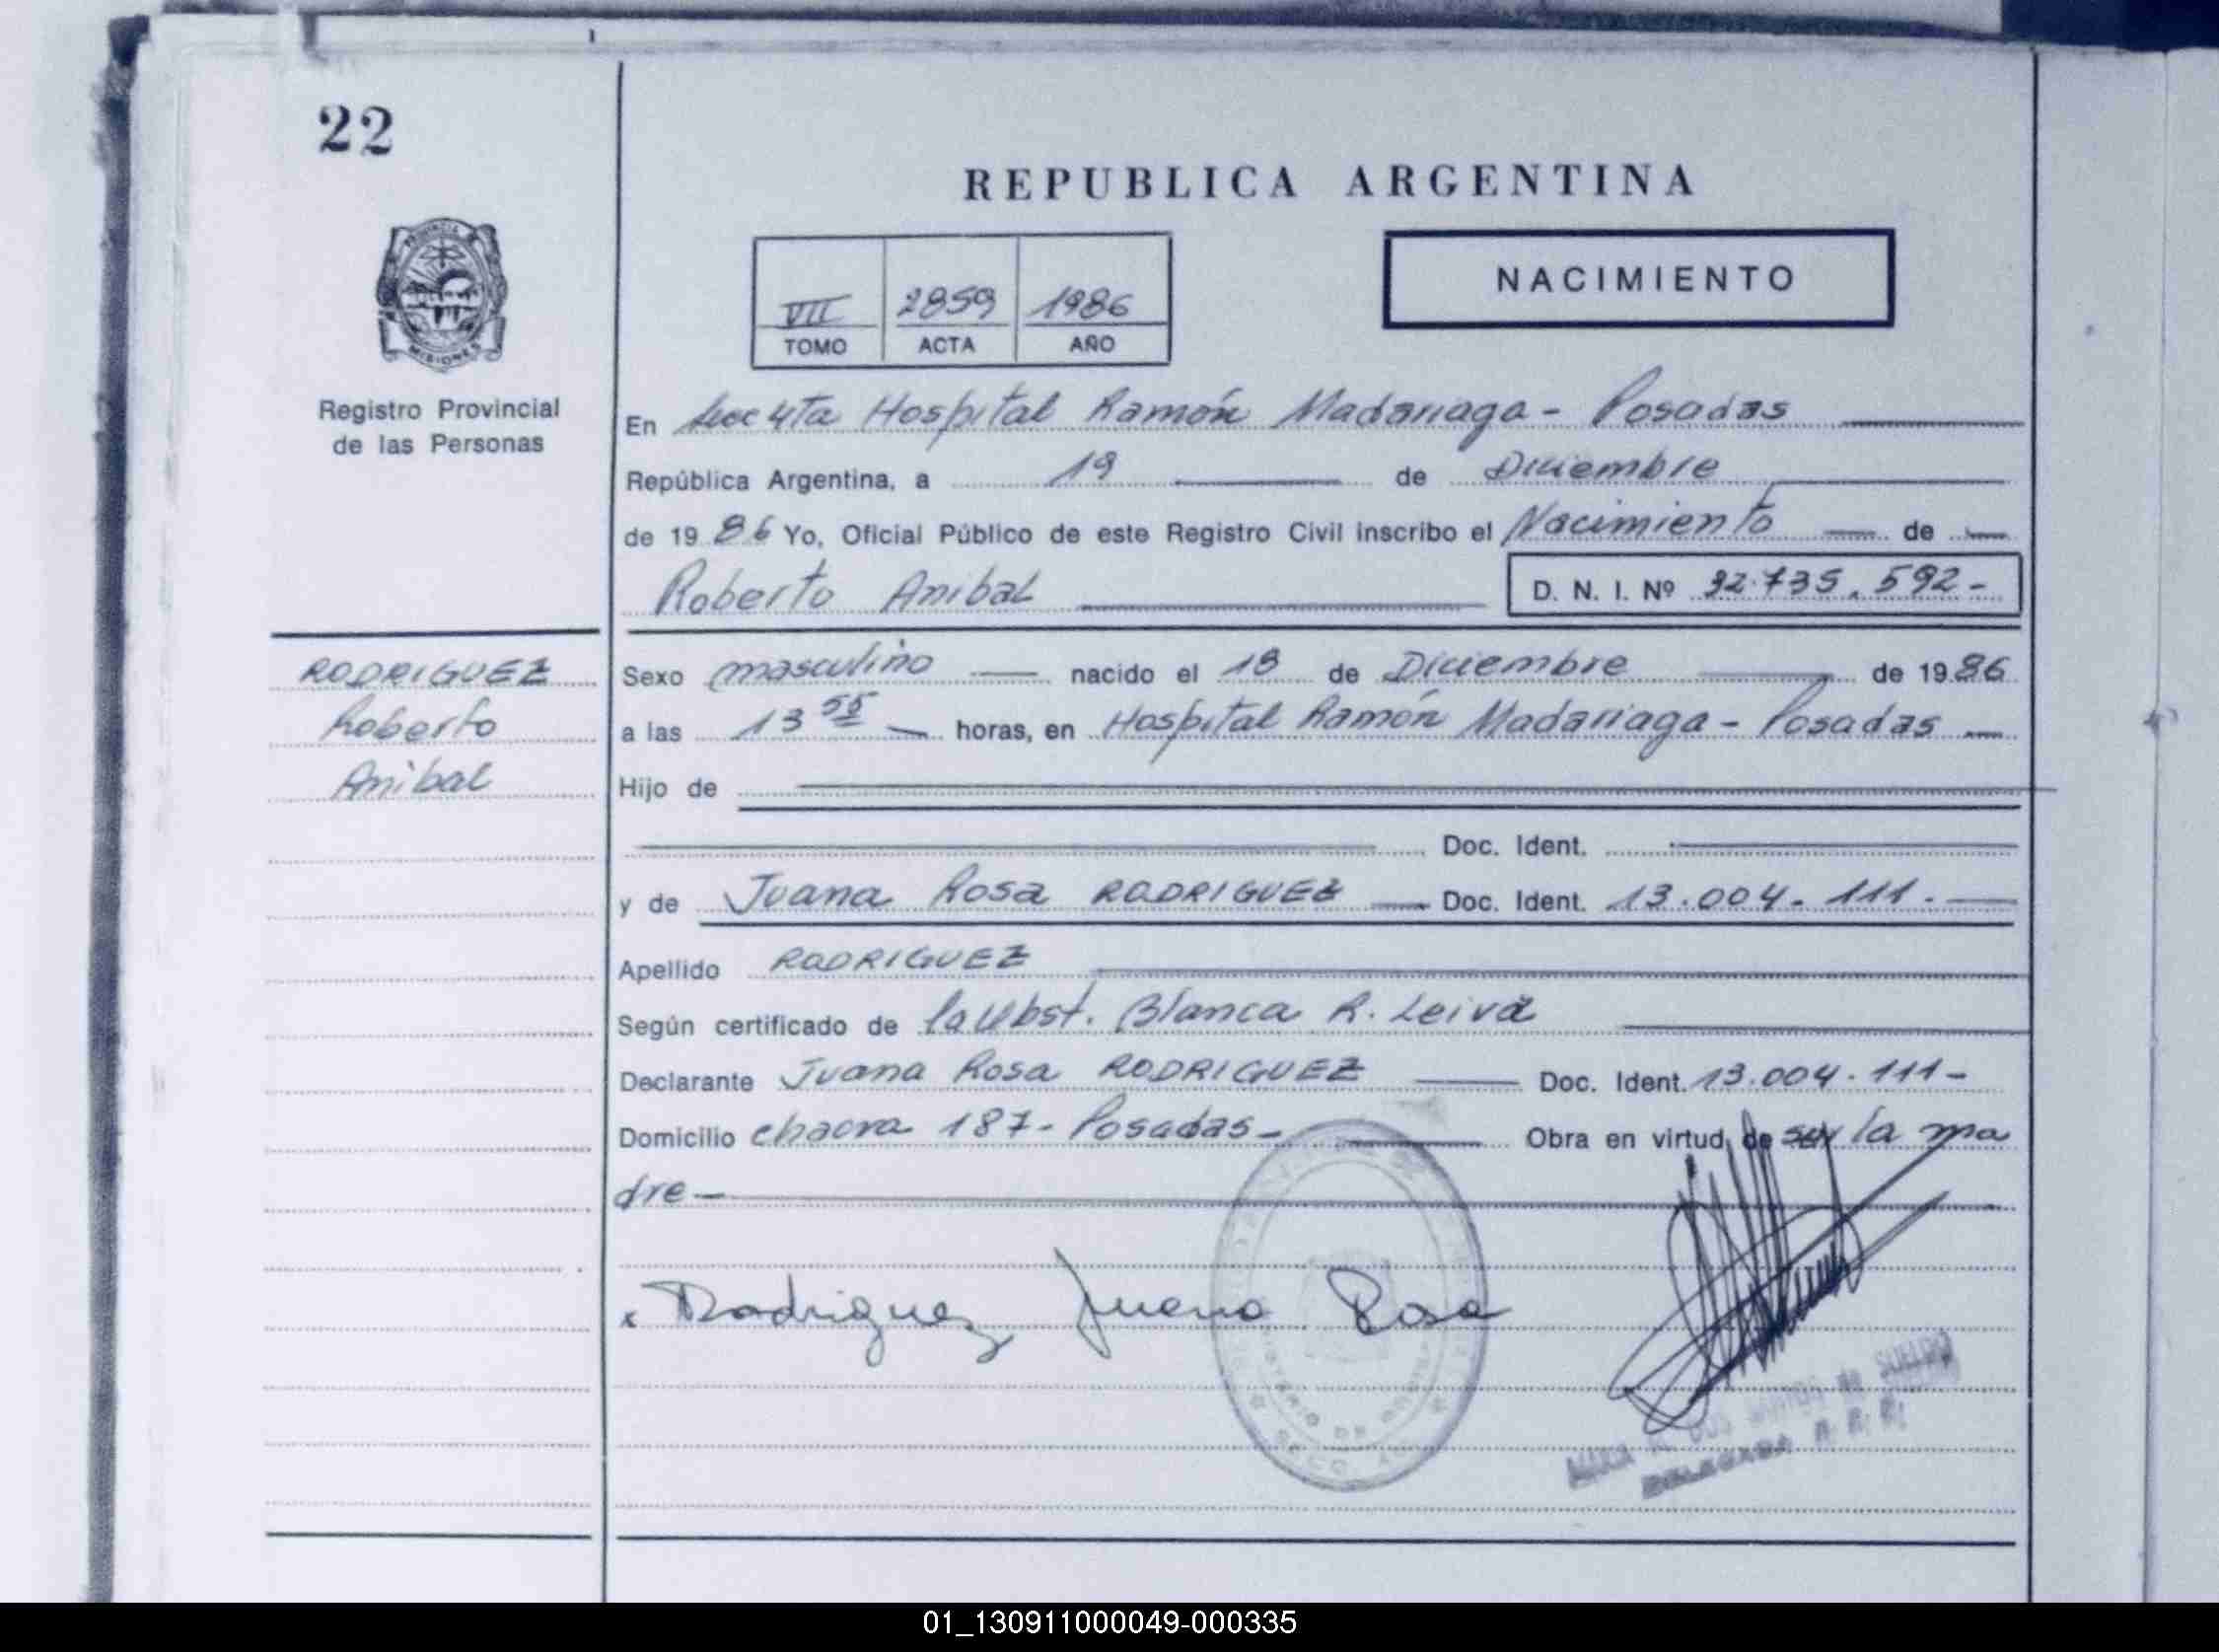 22
REPUBLICA ARGENTINA
PROVINCIA
MISIONES
NACIMIENTO
VII 2859 1986
TOMO ACTA AÑO
Registro Provincial
de las Personas
En Secc 4ta Hospital Ramón Madariaga - Posadas
República Argentina, a 19 de Diciembre
de 1986 Yo, Oficial Público de este Registro Civil inscribo el Nacimiento de
Roberto Anibal D. N. I. Nº 32.735.592-
RODRIGUEZ
Roberto
Anibal
Sexo masculino nacido el 18 de Diciembre de 1986
a las 13 55 horas, en Hospital Ramón Madariaga - Posadas
Hijo de
Doc. Ident.
y de Juana Rosa RODRIGUEZ Doc. Ident. 13.004.111.-
Apellido RODRIGUEZ
Según certificado de la Obst. Blanca R. Leiva
Declarante Juana Rosa RODRIGUEZ Doc. Ident. 13.004.111-
Domicilio chacra 187- Posadas- Obra en virtud de ser la ma
dre-
x Rodriguez Juana Rosa
MARIA DOS SANTOS de SUELDO
DELEGADA R. P.
01_130911000049-000335